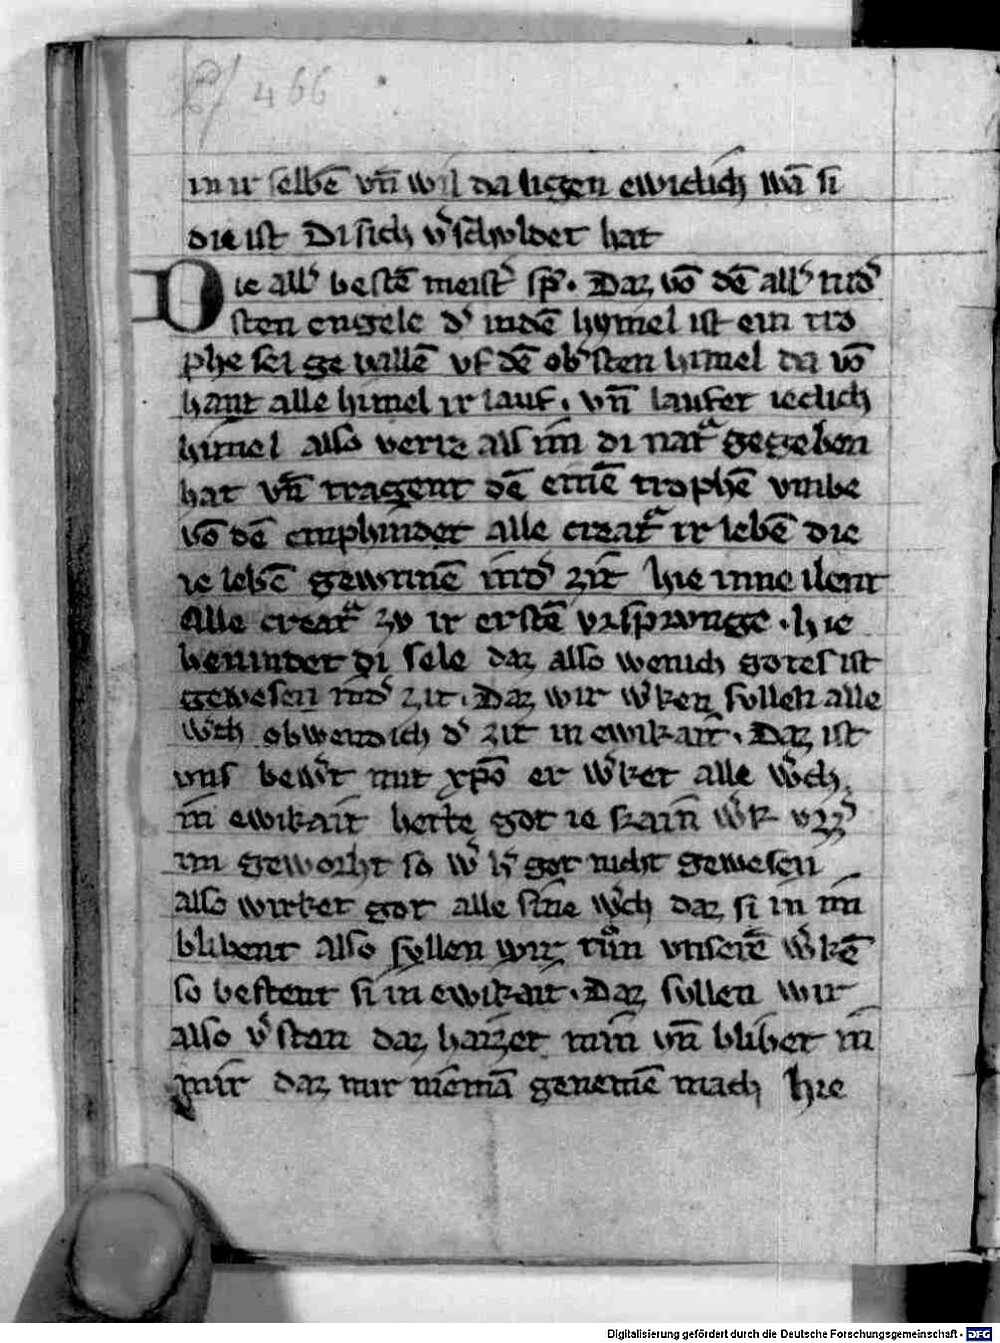 466
in ir selbē vn̄ wil da ligen ewiclich wā si
die ist Di sich v̾schvldet hat
Die all̾ bestē meist̾ sp̄. Daz vō dē all̾ nid̾
sten engele d̾ in dē hymel ist ein tro
phe sei ge vallē vf dē ob̾sten himel da vō
hant alle himel ir lauf. vn̄ laufet ieclich
himel also verre als im di natᷓ gegeben
hat vn̄ tragent dē einē trophē vmbe
vō dē emphindet alle creatᷓ ir lebē die
ie lebē gewunnē in d̾ zit hie inne ilent
Alle creatᷓ zv ir erstē vrsprunge. hie
bevindet di sele daz also wenich gotes ist
gewesen in d̾ zit. Daz wir w̾ken svllen alle
w̾ch obwendich d̾ zit in ewikait. Daz ist
vns bew̾t mit xp̄o er w̾ket alle w̾ch
in ewikait hette got ie kain w̾k vzz̾
im geworht so w̾ er got nicht gewesen
also wirket got alle sine w̾ch daz si in im
blibent Also svllen wir tůn vnserē w̾kē
so bestent si in ewikait. Daz svllen wir
also v̾stan daz haizet min vn̄ blibet in
mir daz mir niemā genemē mach hie
Digitalisierung gefördert durch die Deutsche Forschungsgemeinschaft - DFG